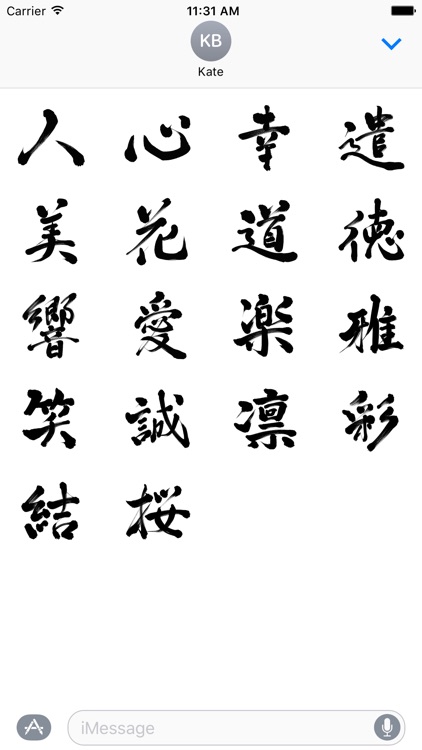 Carrier 11:31 AM
KB
Kate
人 心 幸 遣
美 花 道 徳
響 愛 楽 雅
笑 誠 凛 彩
結 桜
iMessage